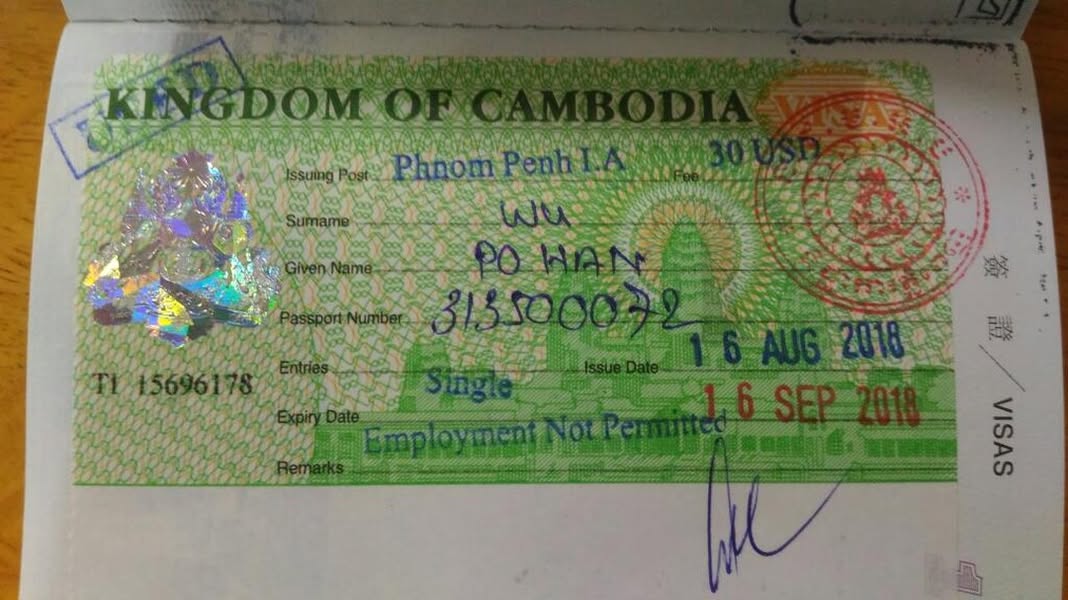 USED
KINGDOM OF CAMBODIA
VISA
Issuing Post Phnom Penh I.A Fee 30 USD
Surname WU
Given Name PO HAN
Passport Number 313500072
Entries Single Issue Date 16 AUG 2018
T1 15696178
Expiry Date 16 SEP 2018
Employment Not Permitted
Remarks
簽證/VISAS